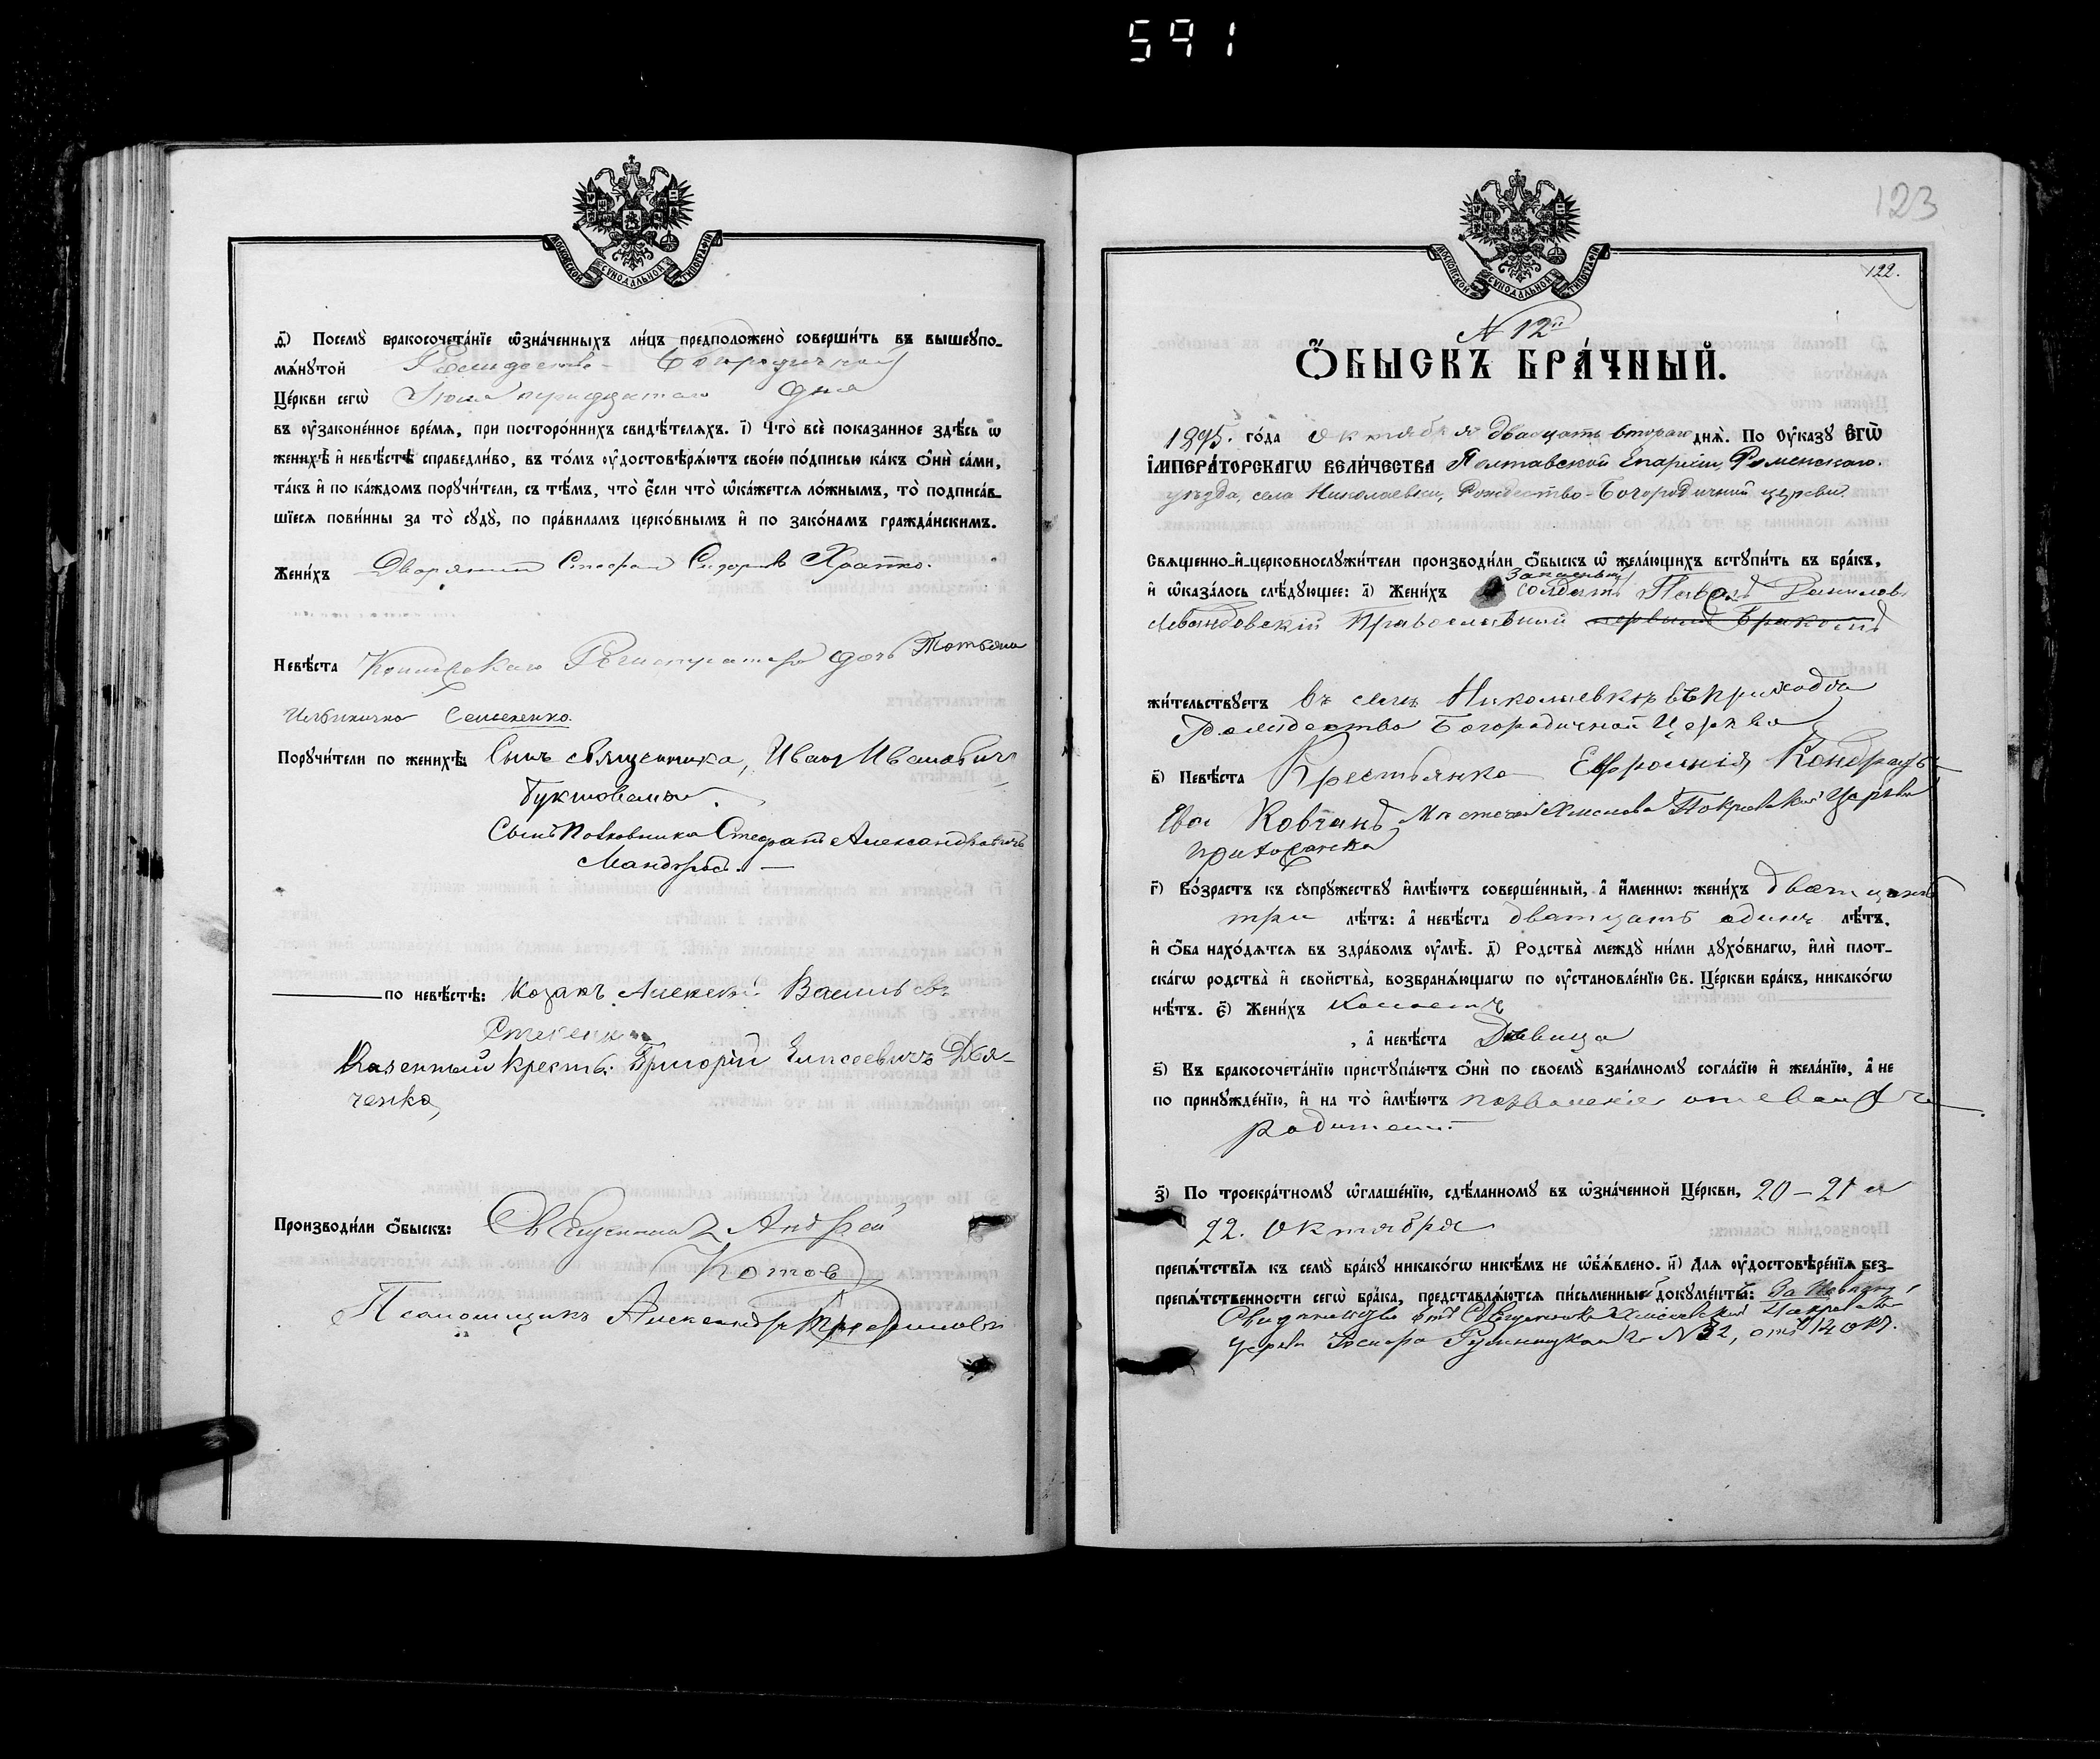 591
МОСКОВСКОЙ СѴНОДАЛЬНОЙ ТИПОГРАФІИ
д҃і) Посемꙋ̀ бракосочета́нїе ѡ҆зна́ченныхъ ли́цъ предположено̀ соверши́ть въ вышеꙋпо-
мѧ́нꙋтой Рождество-Богородичной
Це́ркви сегѡ̀ Іюля тридцатаго дня
въ ᲂу҆зако́ненное вре́мѧ, при посторо́ннихъ свидѣ́телѧхъ. і҃) Что̀ всѐ показанное здѣ́сь ѡ
женихѣ̀ и҆ невѣ́стѣ справедли́во, въ то́мъ ᲂу҆достовѣрѧ́ютъ свое́ю по́дписью ка́къ ѻ҆нѝ са́ми,
та́къ и҆ по ка́ждомъ порꙋчи́тели, съ тѣ́мъ, что̀ є҆́сли что̀ ѡ҆ка́жетсѧ ло́жнымъ, то̀ подписа́в-
шїесѧ пови́нны за то̀ сꙋдꙋ̀, по пра́виламъ церко́внымъ и҆ по зако́намъ гражда́нскимъ.
Жени́хъ Дворянинъ Стефанъ Сидоровъ Храпко.
Невѣ́ста Регистратора дочь Татьяна
Семененко.
Порꙋчи́тели по женихѣ̀: Сынъ священника, Иванъ Ивановичъ
Сынъ Полковника Стефанъ Александровичъ
по невѣ́стѣ: Козакъ Алексѣй Васильевъ
Казенный крестья. Григорій Елисеевичъ Дья-
ченко,
Производи́ли ѻ҆́быскъ: Священникъ Андрей
Котов
Псаломщикъ Александръ
123
122.
МОСКОВСКОЙ СѴНОДАЛЬНОЙ ТИПОГРАФІИ
N 12й
Ѻ҆́БЫСКЪ БРА́ЧНЫЙ.
1895. го́да октября двадцать втораго днѧ̀. По ᲂу҆ка́зꙋ Є҆гѡ̀
І҆МПЕРА́ТОРСКАГѠ ВЕЛИ́ЧЕСТВА Полтавской Епархіи, Роменскаго.
уѣзда, села Николаевки, Рождество-Богородичной церкви
Свѧще́нно-и҆-церковнослꙋжи́тели производи́ли ѻ҆́быскъ ѡ҆ жела́ющихъ встꙋпи́ть въ бра́къ,
и҆ ѡ҆каза́лось слѣ́дꙋющее: а҃) Жени́хъ запасный солдатъ Павелъ Даниловъ
Левандовскій Православный первымъ бракомъ
жи́тельствꙋетъ въ селѣ Николаевкѣ въ приходѣ
Рождество Богородичной Церкви
в҃) Невѣ́ста Крестьянка Ефросинія Кондрать-
ева Ковчанъ Мѣстечка Покровской Церкви
прихожанка
г҃) Во́зрастъ къ сꙋпрꙋ́жествꙋ и҆мѣ́ютъ соверше́нный, а҆ и҆́меннѡ: жени́хъ двадцать
три лѣ́тъ: а҆ невѣ́ста двадцать одинъ лѣ́тъ,
и҆ ѻ҆́ба нахо́дѧтсѧ въ здра́вомъ ᲂу҆мѣ̀. д҃) Родства̀ междꙋ̀ ни́ми дꙋхо́внагѡ, и҆лѝ плот-
ска́гѡ родства̀ и҆ сво́йства̀, возбранѧ́ющагѡ по ᲂу҆становле́нїю Св. Це́ркви бра́къ, никако́гѡ
нѣ́тъ. є҃) Жени́хъ холостъ
, а҆ невѣ́ста Дѣвица
ѕ҃) Къ бракосочета́нїю пристꙋпа́ютъ ѻ҆нѝ по своемꙋ̀ взаи́мномꙋ согла́сїю и҆ жела́нїю, а҆ не
по принꙋжде́нїю, и҆ на то̀ и҆мѣ́ютъ позволеніе
родители.
з҃) По троекра́тномꙋ ѡ҆глаше́нїю, сдѣ́ланномꙋ въ ѡ҆зна́ченной Це́ркви, 20-21 и
22. Октября
препѧ́тствїѧ къ семꙋ̀ бра́кꙋ никако́гѡ никѣ́мъ не ѡ҆б̾ѧ́влено. и҃) Длѧ ᲂу҆достовѣре́нїѧ без-
препѧ́тственности сегѡ̀ бра́ка, представлѧ́ютсѧ пи́сьменные докꙋме́нты: За
Свидетельство отъ Священника Покровской
церкви N 32, отъ 14 окт.